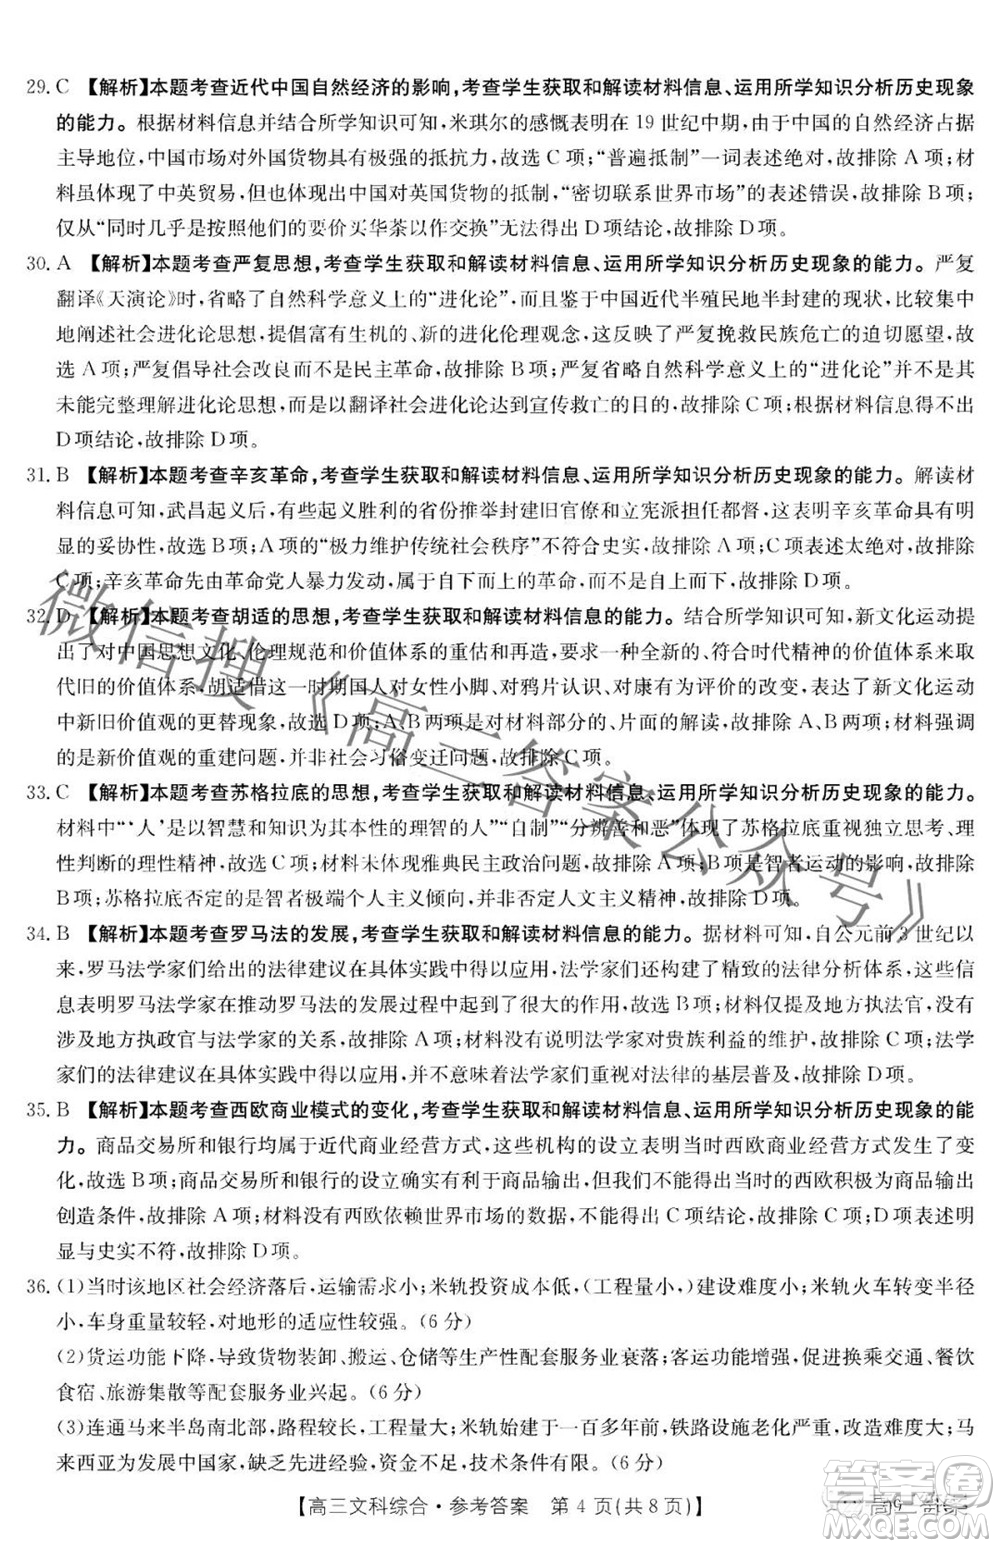 29. C 【解析】本题考查近代中国自然经济的影响,考查学生获取和解读材料信息、运用所学知识分析历史现象
的能力。根据材料信息并结合所学知识可知,米琪尔的感慨表明在 19 世纪中期,由于中国的自然经济占据
主导地位,中国市场对外国货物具有极强的抵抗力,故选 C 项;“普遍抵制”一词表述绝对,故排除 A 项;材
料虽体现了中英贸易,但主要强调中国对英国货物的抵制,“密切联系世界市场”的表述错误,故排除 B 项;
仅从“同时几乎是按相等的价值购买华茶以作交换”无法得出 D 项结论,故排除 D 项。
30. A 【解析】本题考查严复思想,考查学生获取和解读材料信息、运用所学知识分析历史现象的能力。严复
翻译《天演论》时,省略了自然科学意义上的“进化论”,而且鉴于中国近代半殖民地半封建的现状,比较集中
地阐述社会进化论思想,提倡富有生机的、新的进化伦理观念,这反映了严复挽救民族危亡的迫切愿望,故
选 A 项;严复倡导社会改良而不是革命,故排除 B 项;严复省略自然科学意义上的“进化论”,并不是因为其
未能完整理解进化论思想,而是以翻译社会进化论达到宣传救亡的目的,故排除 C 项;根据材料信息得不出
D 项结论,故排除 D 项。
31. B 【解析】本题考查辛亥革命,考查学生获取和解读材料信息、运用所学知识分析历史现象的能力。解读材
料信息可知,武昌起义后,有些起义胜利的省份推举封建旧官僚和立宪派担任都督,这说明辛亥革命具有明
显的妥协性,故选 B 项;A 项的“极力维护传统社会秩序”不符合史实,故排除 A 项;C 项表述太绝对,故排除
C 项;辛亥革命是由革命党人暴力发动的,故排除 D 项。
32. D 【解析】本题考查胡适的思想,考查学生获取和解读材料信息的能力。结合所学知识可知,新文化运动提
出了对中国思想文化、伦理规范和价值体系的重估和再造,试图建立一套符合时代精神的价值体系来取
代旧的价值体系,胡适借这一时期国人对女性小脚、对鸦片认识、对康有为评价的改变,表现了新文化运动
中新旧价值观的更替现象,故选 D 项;A、B 两项是对材料部分的、片面的解读,故排除 A、B 两项;材料强调
的是新价值观的重建问题,并非社会习俗变迁问题,故排除 C 项。
33. C 【解析】本题考查苏格拉底的思想,考查学生获取和解读材料信息、运用所学知识分析历史现象的能力。
材料中“‘人’是以智慧和知识为其本性的理智的人”“自制”“分辨善和恶”体现了苏格拉底重视独立思考、理
性判断的理性精神,故选 C 项;材料未体现雅典民主政治问题,故排除 A 项;B 项是智者运动的影响,故排除
B 项;苏格拉底否定的是智者的极端个人主义倾向,并非否定人文主义精神,故排除 D 项。
34. B 【解析】本题考查罗马法的发展,考查学生获取和解读材料信息的能力。据材料可知,自公元前 3 世纪以
来,罗马法学家们给出的法律建议在具体实践中得以运用,法学家们还构建了精致的法律分析体系,这些信
息表明罗马法学家在推动罗马法的发展过程中起到了很大的作用,故选 B 项;材料仅提及地方执法官,没有
涉及地方执政官与法学家的关系,故排除 A 项;材料没有体现对贵族利益的维护,故排除 C 项;材料强调法
学家们的法律建议在具体实践中的运用,这并不意味着实现对法律的基层普及,故排除 D 项。
35. B 【解析】本题考查西欧商业模式的变化,考查学生获取和解读材料信息、运用所学知识分析历史现象的能
力。商品交易所和银行均属于近代商业经营方式,这些机构的设立表明当时西欧商业经营方式发生了变
化,故选 B 项;商品交易所和银行的设立并不是直接用于商品输出,且此时的西欧积极为商品输出
创造条件,故排除 A 项;材料没有西欧依赖世界市场的数据,不能得出 C 项结论,故排除 C 项;D 项表述明
显与史实不符,故排除 D 项。
36. (1)当时该地区社会经济落后,运输需求小;米轨投资成本低,(工程量小)建设难度小;米轨火车转变半径
小,车身重量轻,对地形的适应性较强。(6 分)
(2)货运功能下降,导致货物装卸、搬运、仓储等生产性配套服务业衰落;客运功能增强,促进换乘交通、餐饮
食宿、旅游集散等配套服务业兴起。(6 分)
(3)连通马来半岛南北部,路程较长,工程量大;米轨始建于一百多年前,铁路设施老化严重,改造难度大;马
来西亚为发展中国家,缺乏先进经验,资金不足,技术条件有限。(6 分)
【高三文科综合·参考答案 第 4 页(共 8 页)】
微信搜《高三答案公众号》